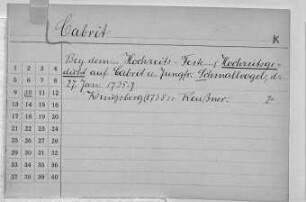 Cabrit
K
Bey dem Hochzeits-Feste, Hochzeitsge-
dicht auf Cabrit u. Jungfr. Schmallvogel, d.
27. Jan. 1735.
Königsberg (1735): Reußner. 2°
1 2 3 4
5 6 7 8
9 10 11 12
13 14 15 16
17 18 19 20
21 22 23 24
25 26 27 28
29 30 31 32
33 34 35 36
37 38 39 40